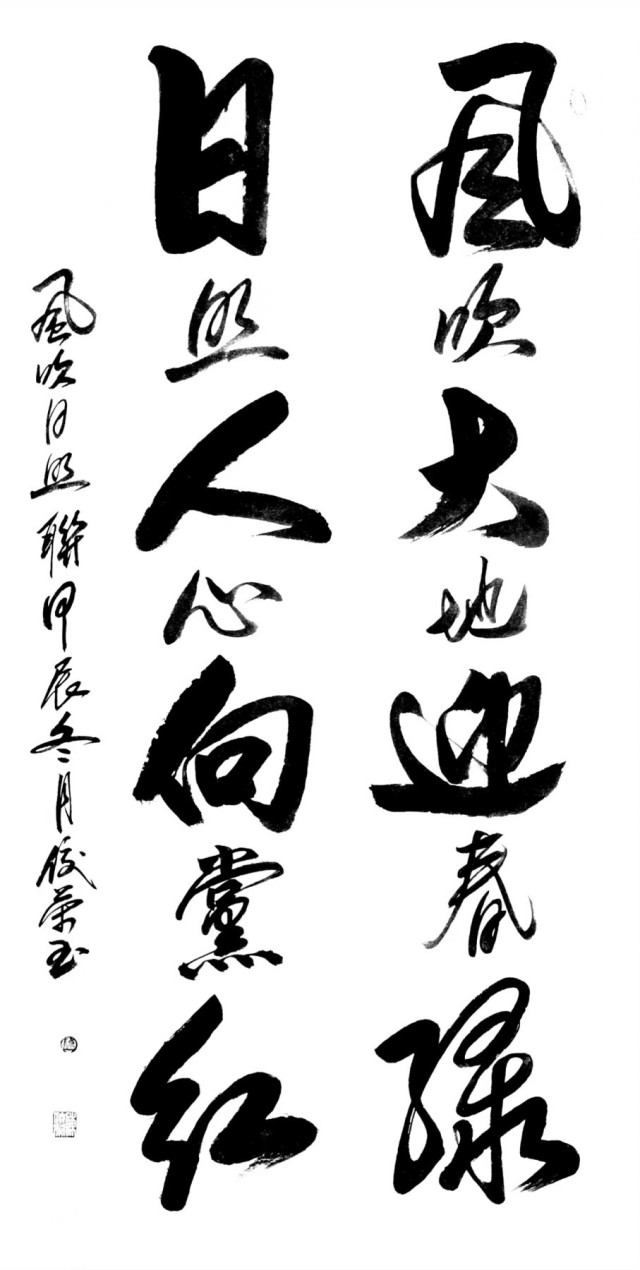 風吹大地迎春绿
日照人心向黨红
風吹日照聯甲辰冬月俊荣玉